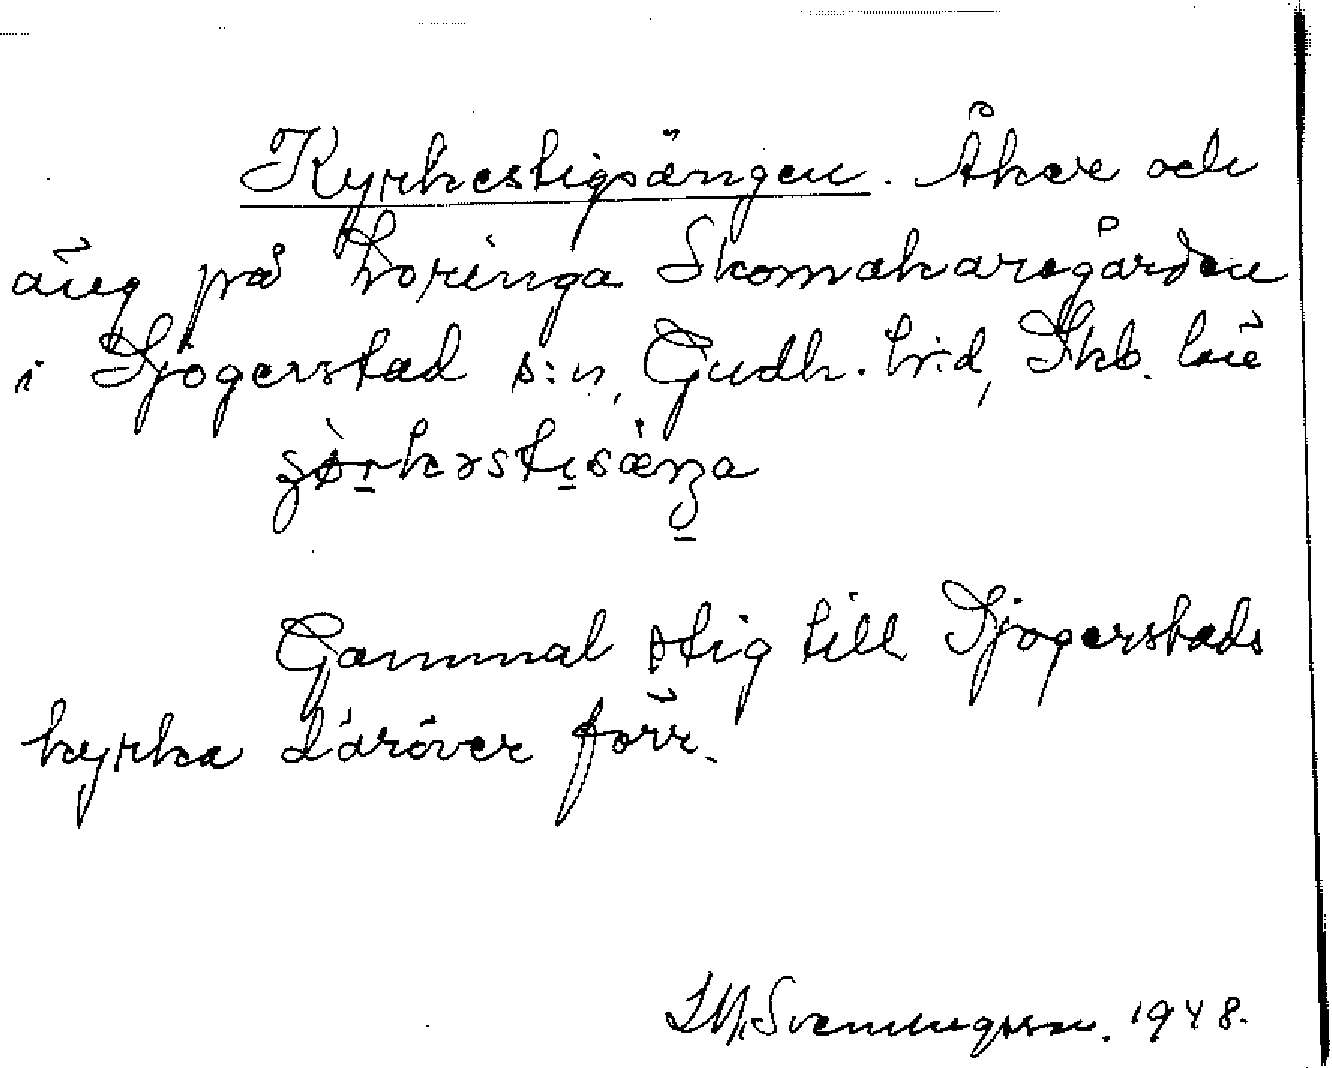 Kyrkestigsängen. Åker och
äng på Loringa Skomakaregården
i Sjogerstad s:n, Gudh. h:d, Skb. län
Gammal stig till Sjogerstads
kyrka däröver förr.
Svenungsson. 1948.